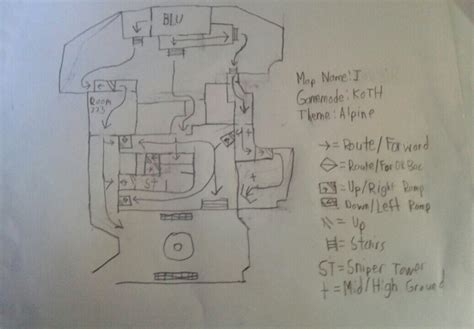 BLU
Map Name: I
Gammode: KoTH
Theme: Alpine
Room
223
→=Route/Forward
=Route/For Or Bac
=Up/Right Ramp
=Down/Left Ramp
=Up
=Stairs
ST=Sniper Tower
+=Mid/High Ground
ST